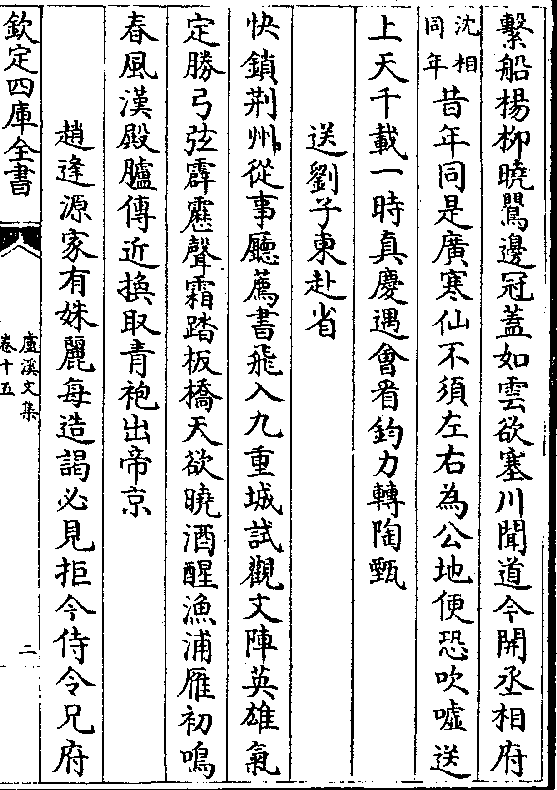 繫船楊柳曉鷖邊冠蓋如雲欲塞川聞道今開丞相府
沈相同年昔年同是廣寒仙不須左右為公地便恐吹噓送
上天千載一時真慶遇㑹看鈞力轉陶甄
送劉子東赴省
快鎖荆州從事廳薦書飛入九重城試觀文陣英雄氣
定勝弓弦霹靂聲霜踏板橋天欲曉酒醒漁浦雁初鳴
春風漢殿臚傳近換取青袍出帝京
趙逢源家有姝麗每造謁必見拒今侍令兄府
欽定四庫全書
盧溪文集
卷十五
二